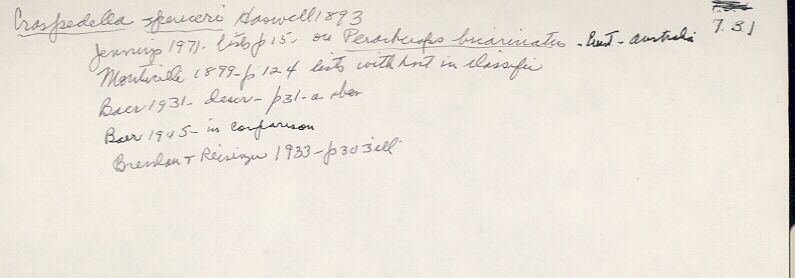 Craspedella spenceri Haswell 1893
7.31
Jennings 1971 - lists p 15 - on Paracheraps bicarinatus - host - australia
Monticelli 1899 - p 124 lists with host in classific
Baer 1931 - descr - p 31 - as aben
Baer 1945 - in comparison
Bresslau & Reisinger 1933 - p 303 ill